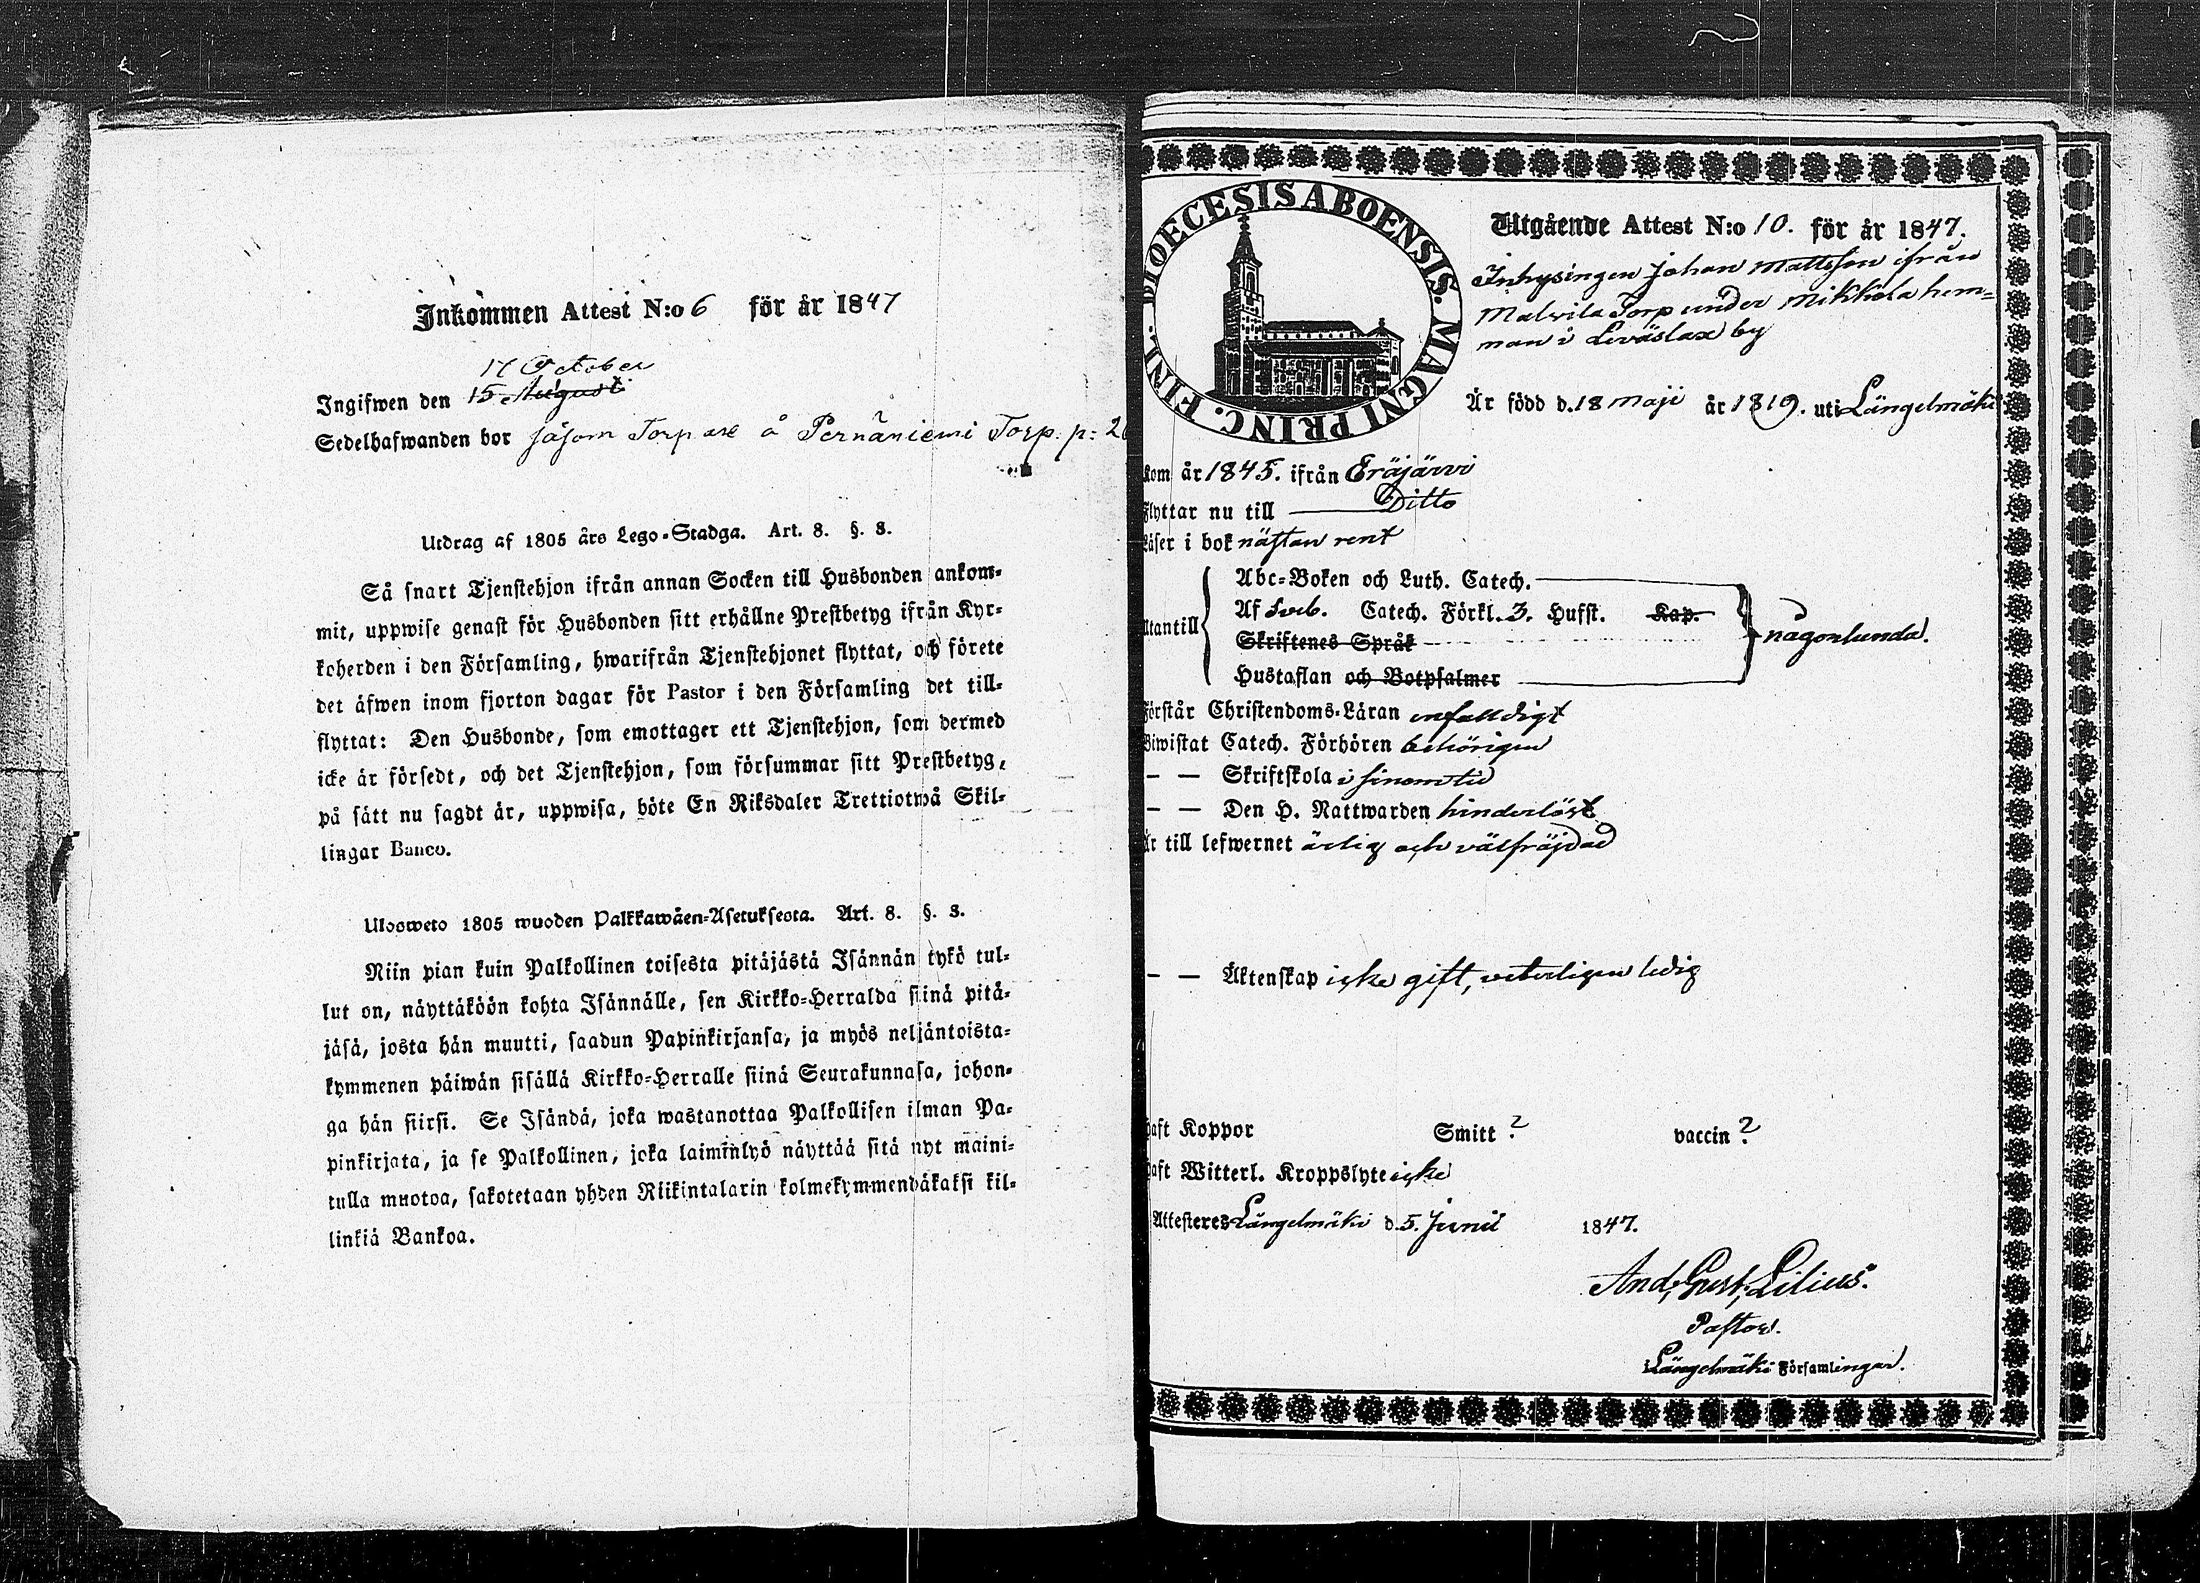 Inkommen Attest N:o 6 för år 1847
17 October
Ingifwen den 15 August
Sedelhafwanden bor såsom Torpare å Pernäniemi Torp. p: 2
Utdrag af 1805 års Lego-Stadga. Art. 8. §. 3.
Så snart Tjenstehjon ifrån annan Socken till Husbonden ankom-
mit, uppwise genast för Husbonden sitt erhållne Prestbetyg ifrån Kyr-
koherden i den Församling, hwarifrån Tjenstehjonet flyttat, och förete
det äfwen inom fjorton dagar för Pastor i den Församling det till-
flyttat: Den Husbonde, som emottager ett Tjenstehjon, som dermed
icke är försedt, och det Tjenstehjon, som försummar sitt Prestbetyg,
på sätt nu sagdt är, uppwisa, böte En Riksdaler Trettiotwå Skil-
lingar Banco.
Ulosweto 1805 wuoden Palkkawäen-Asetuksesta. Art. 8. §. 3.
Niin pian kuin Palkollinen toisesta pitäjästä Isännän tykö tul-
lut on, näyttäköön kohta Isännälle, sen Kirkko-Herralda siinä pitä-
jäsä, josta hän muutti, saadun Papinkirjansa, ja myös neljäntoista-
kymmenen päiwän sisällä Kirkko-Herralle siinä Seurakunnasa, johon-
ga hän siirsi. Se Isändä, joka wastanottaa Palkollisen ilman Pa-
pinkirjata, ja se Palkollinen, joka laiminlyö näyttää sitä nyt maini-
tulla muotoa, sakotetaan yhden Riikintalarin kolmekymmendäkaksi kil-
linkiä Bankoa.
DIOECESIS ABOENSIS. MAGNI PRINC. FINL.
Utgående Attest N:o 10. för år 1847.
Inhysingen Johan Mattsson ifrån
Malvila Torp under Mikkola hem-
man i Leväslax by
Är född d. 18 Maji år 1819. uti Längelmäki
Kom år 1845. ifrån Eräjärvi
Flyttar nu till Ditto
Läser i bok nästan rent
Utantill
Abc-Boken och Luth. Catech.
Af Sveb. Catech. Förkl. 3. Hufst. Kap.
Skriftenes Språk
Hustaflan och Botpsalmer
någorlunda.
Förstår Christendoms-Läran enfalldigt
Biwistat Catech. Förhören behörigen
— — Skriftskola i sinom tid
— — Den H. Nattwarden hinderlöst
Är till lefwernet ärlig och välfräjdad
— — Äktenskap icke gift, veterligen ledig
Haft Koppor Smitt ? vaccin ?
Haft Witterl. Kroppslyte icke
Attesteres Längelmäki d. 5. Junii 1847.
And. Gust. Lilius.
Pastor.
i Längelmäki Församlingar.